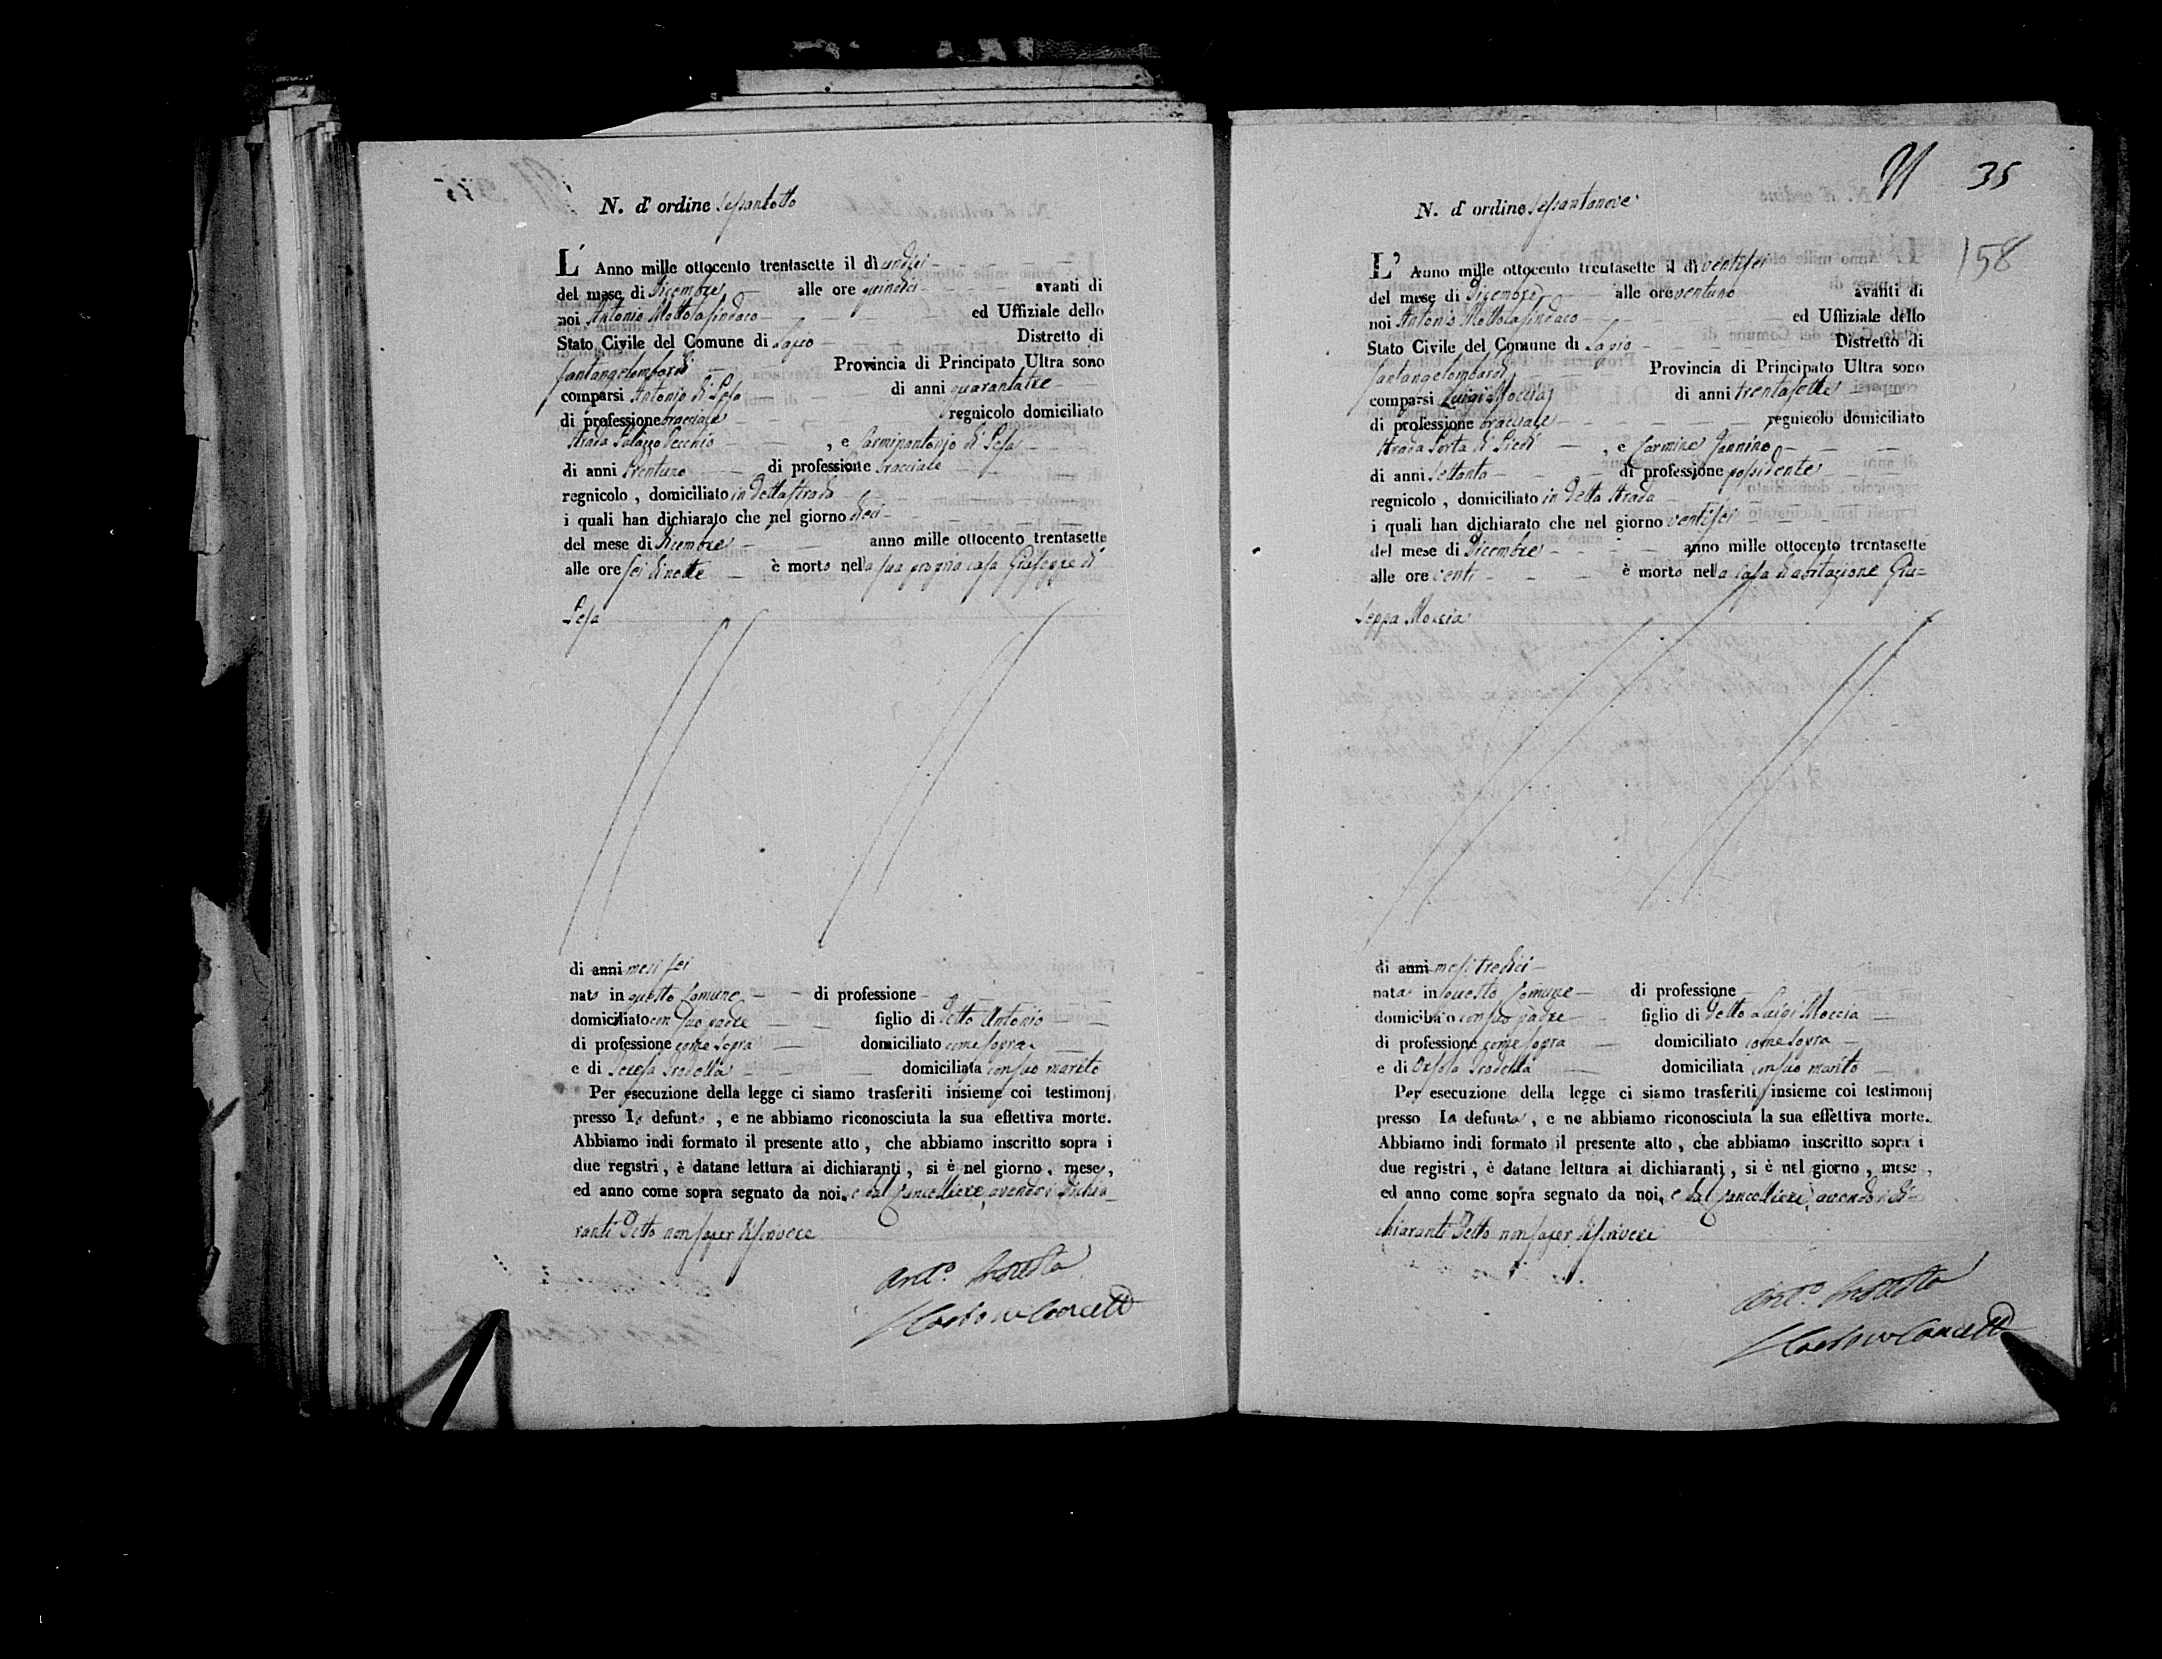 N. d' ordine Sessantotto
L' Anno mille ottocento trentasette il dì undici
del mese di Dicembre alle ore quindici avanti di
noi Antonio Mottola Sindaco ed Uffiziale dello
Stato Civile del Comune di Lapio Distretto di
Santangelombardi Provincia di Principato Ultra sono
comparsi Antonio di Pesa di anni quarantatre
di professione bracciale regnicolo domiciliato
Strada Palazzo Vecchio , e Carminantonio di Pesa
di anni trentuno di professione bracciale
regnicolo , domiciliato in detta strada
i quali han dichiarato che nel giorno dieci
del mese di Dicembre anno mille ottocento trentasette
alle ore sei di notte è morto nella sua propria casa Giuseppe di
Pesa
di anni mesi sei
nato in questo Comune di professione
domiciliato con suo padre figlio di detto Antonio
di professione come sopra domiciliato come sopra
e di Teresa domiciliata con suo marito
Per esecuzione della legge ci siamo trasferiti insieme coi testimonj
presso lo defunto , e ne abbiamo riconosciuta la sua effettiva morte.
Abbiamo indi formato il presente atto , che abbiamo inscritto sopra i
due registri , è datane lettura ai dichiaranti , si è nel giorno , mese ,
ed anno come sopra segnato da noi, e dal Cancelliere, avendo i dichia-
ranti detto non saper di scrivere
Ant.o Mottola
35
N. d' ordine Sessantanove
158
L' Anno mille ottocento trentasette il dì ventisei
del mese di Dicembre alle ore ventuno avanti di
noi Antonio Mottola Sindaco ed Uffiziale dello
Stato Civile del Comune di Lapio Distretto di
Santangelombardi Provincia di Principato Ultra sono
comparsi Luigi Moccia di anni trentasette
di professione bracciale regnicolo domiciliato
Strada Porta di Piedi , e Carmine Iannino
di anni settanta di professione possidente
regnicolo , domiciliato in detta strada
i quali han dichiarato che nel giorno ventisei
del mese di Dicembre anno mille ottocento trentasette
alle ore venti è morto nella casa d'abitazione Giu=
seppa Moccia
di anni mesi tredici
nata in questo Comune di professione
domiciliato con suo padre figlio di detto Luigi Moccia
di professione come sopra domiciliato come sopra
e di Orsola domiciliata con suo marito
Per esecuzione della legge ci siamo trasferiti insieme coi testimonj
presso la defunta , e ne abbiamo riconosciuta la sua effettiva morte.
Abbiamo indi formato il presente atto , che abbiamo inscritto sopra i
due registri , è datane lettura ai dichiaranti , si è nel giorno , mese ,
ed anno come sopra segnato da noi, e dal Cancelliere, avendo i di-
chiaranti detto non saper di scrivere
Ant.o Mottola